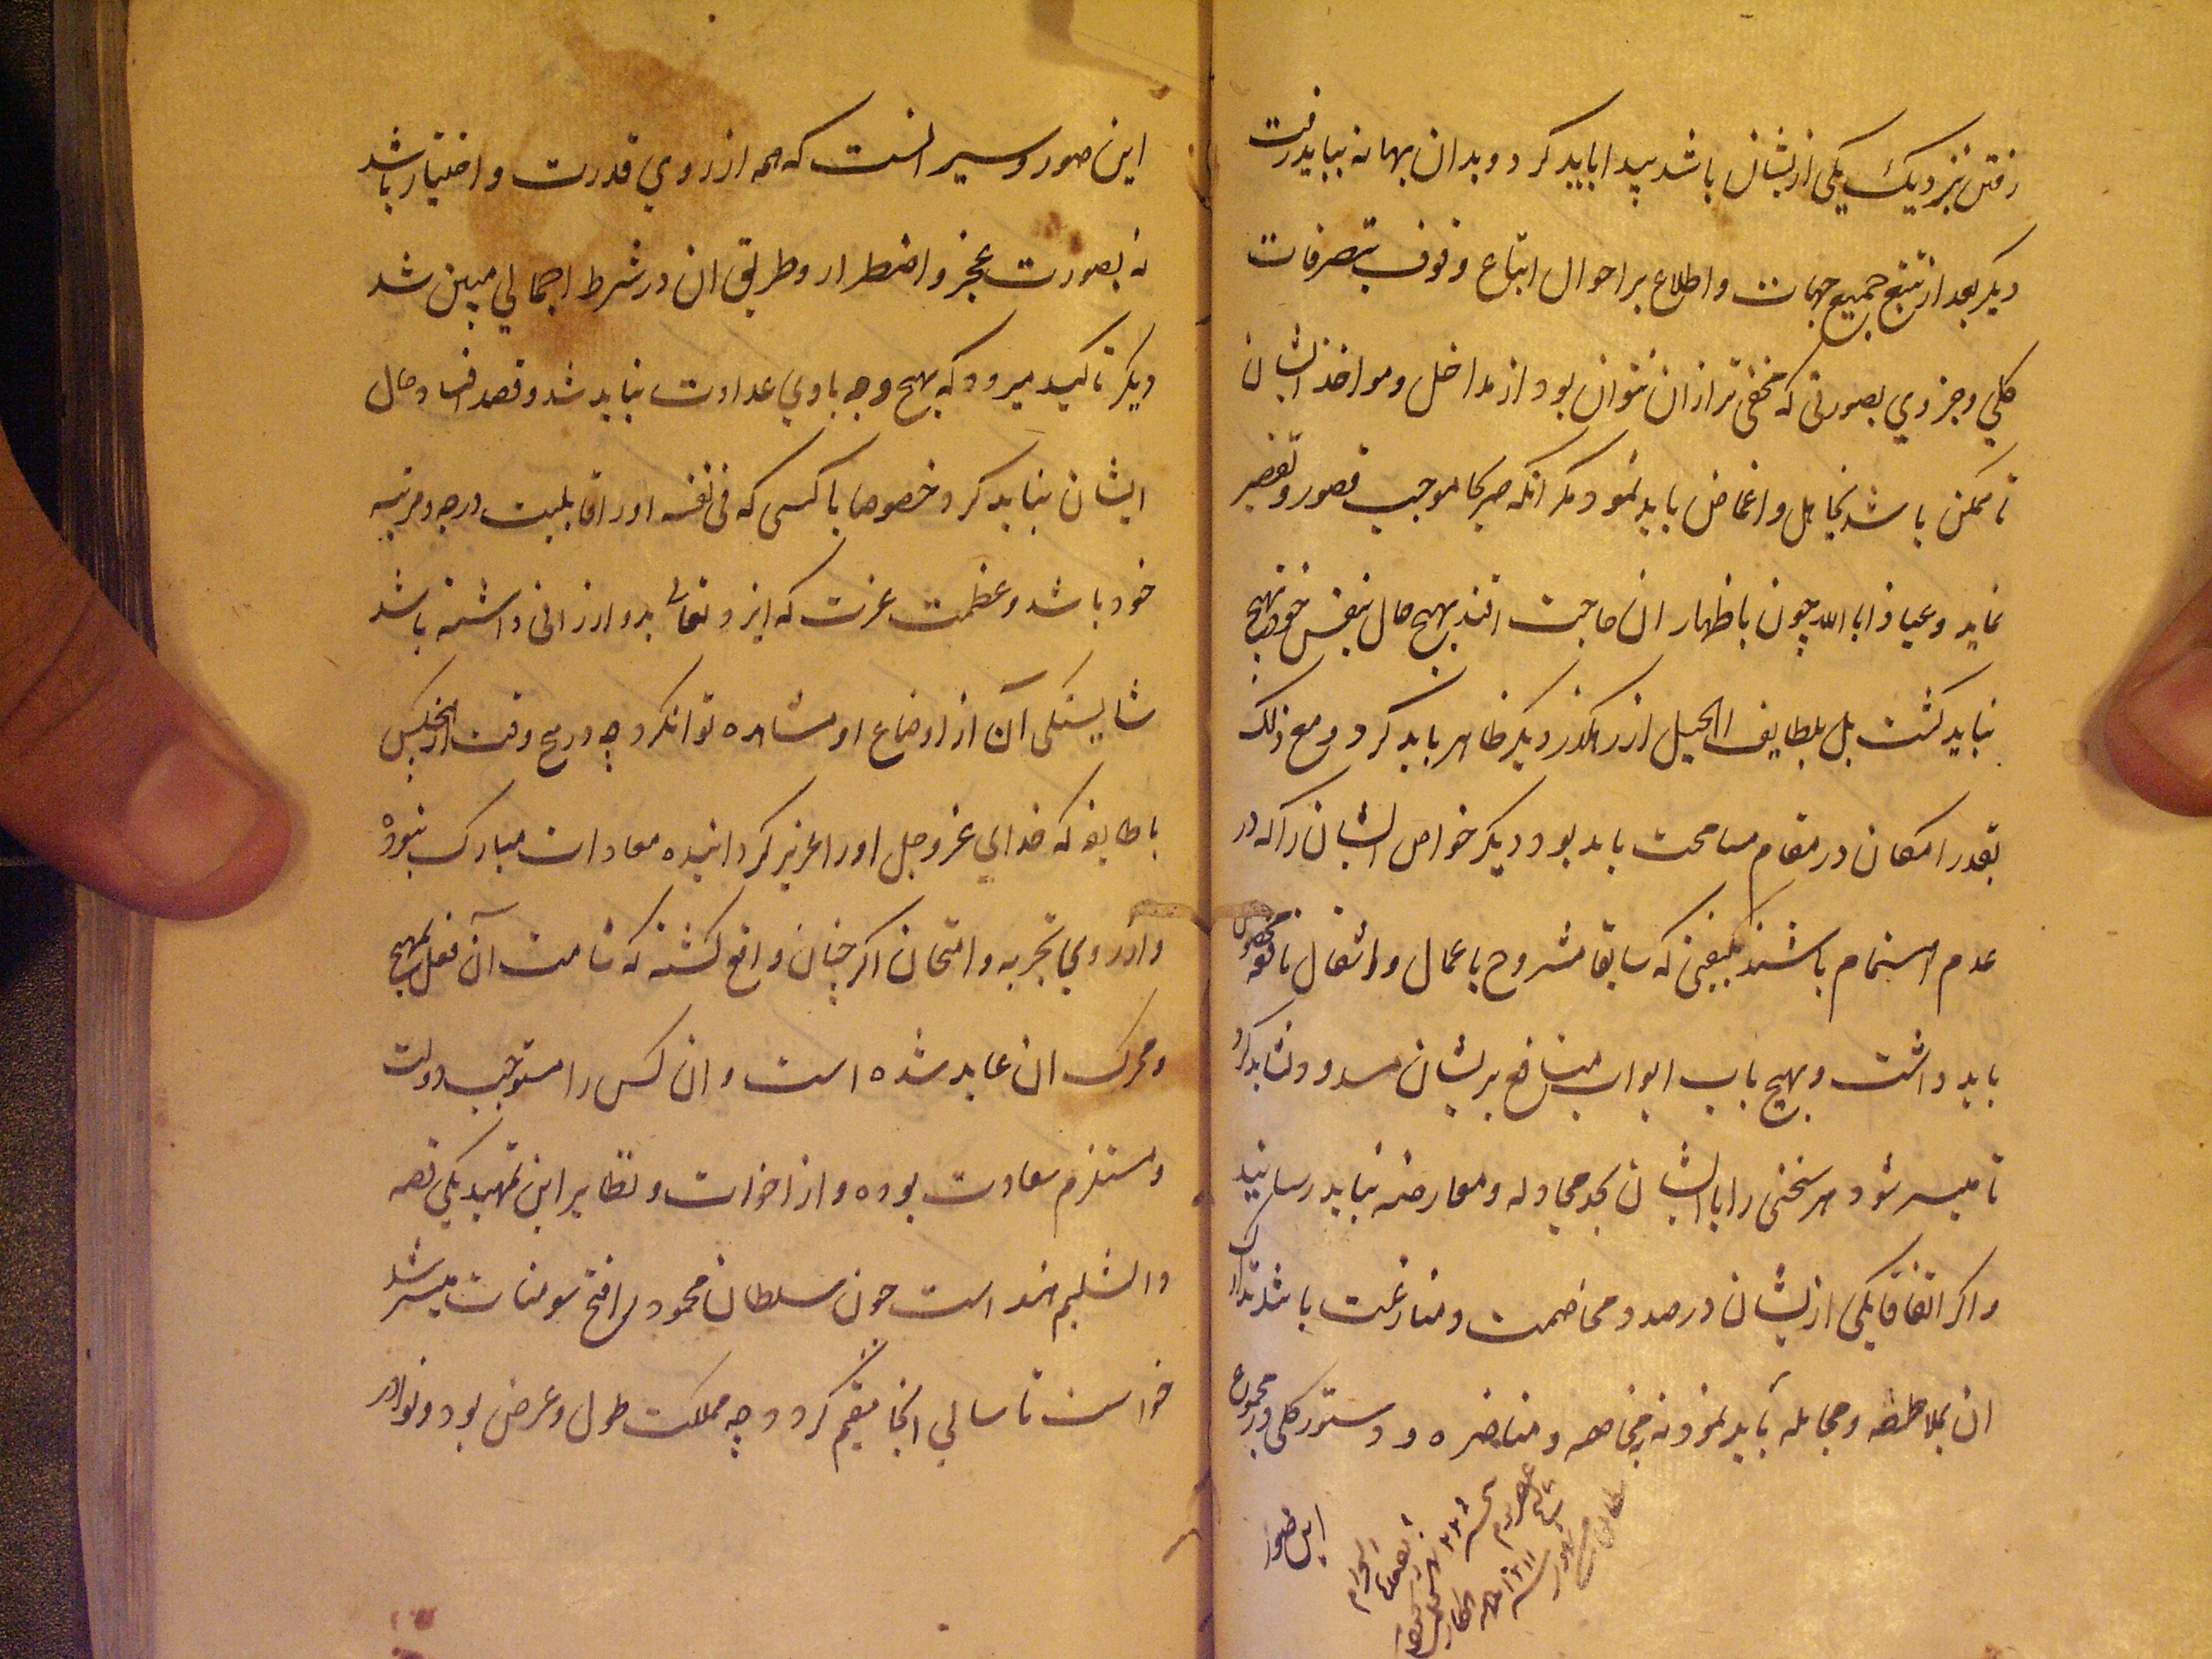 رفتن نزدیک یکی ازیشان باشد پیدا باید کرد و بدان بهانه بباید رفت
دیکر بعد از تتبع جمیع جهات و اطلاع بر احوال اتباع و وقوف بتصرفات
کلي و جزوي بصورتی که مخفی تر ازان نتوان بود از مداخل و مواخذ ایشان
تا ممکن باشد تجاهل و اغماض باید نمود مکر انکه صریحا موجب قصور و تقصیر
نماید و عیاذا بالله چون باظهار ان حاجت افتد بهیچ حال بنفس خود بهیچ
نباید کشت بل بلطایف الحیل از رهکذر دیکر ظاهر باید کرد و مع ذلک
بقدر امکان در مقام مسامحت باید بود دیکر خواص ایشان را که در
عدم اهتمام باشند بکیفیتی که سابقا مشروح باعمال و اشغال مخصوص
باید داشت و بهیچ باب ابواب منافع بریشان مسدود نشاید کرد
تا میسر شود هر سخنی را با ایشان بحد مجادله و معارضه نباید رسانید
و اکر اتفاقا یکی ازیشان در صدد مخاصمت و منازعت باشد تدارک
ان بملاطفه و مجامله باید نمود نه بمخاصمه و دستور کلی در مجموع
این صور
این صور و سیر انست که همه از روي قدرت و اختیار باشد
نه بصورت عجز و اضطرار و طریق ان در شرط اجمالي مبین شد
دیکر تاکید میرود که بهیچ وجه با وي عداوت نباید شد و قصد افساد حال
ایشان نباید کرد خصوصا با کسی که فی نفسه او را قابلیت درجه و مرتبه
خود باشد و عظمت عزت که ایزد تعالی بدو ارزانی داشته باشد
شایستکی آن از اوضاع او مشاهده توان کرد چه در هیچ وقت هیچکس
با طایفه که خداي عز و جل او را عزیز کردانیده معادات مبارک نبود
و از روي تجربه و امتحان اکر چنان واقع کشته که شامت آن فعل بمهیج
و محرک ان عاید شده است و ان کس را مستوجب دولت
و مستلزم سعادت بوده و از اخوات و نظایر این تمهید یکی قصه
دابشلیم هند است چون سلطان محمود را فتح سومنات میسر شد
خواست تا سالي انجا مقیم کردد چه مملکت طول و عرض بود و نوادر